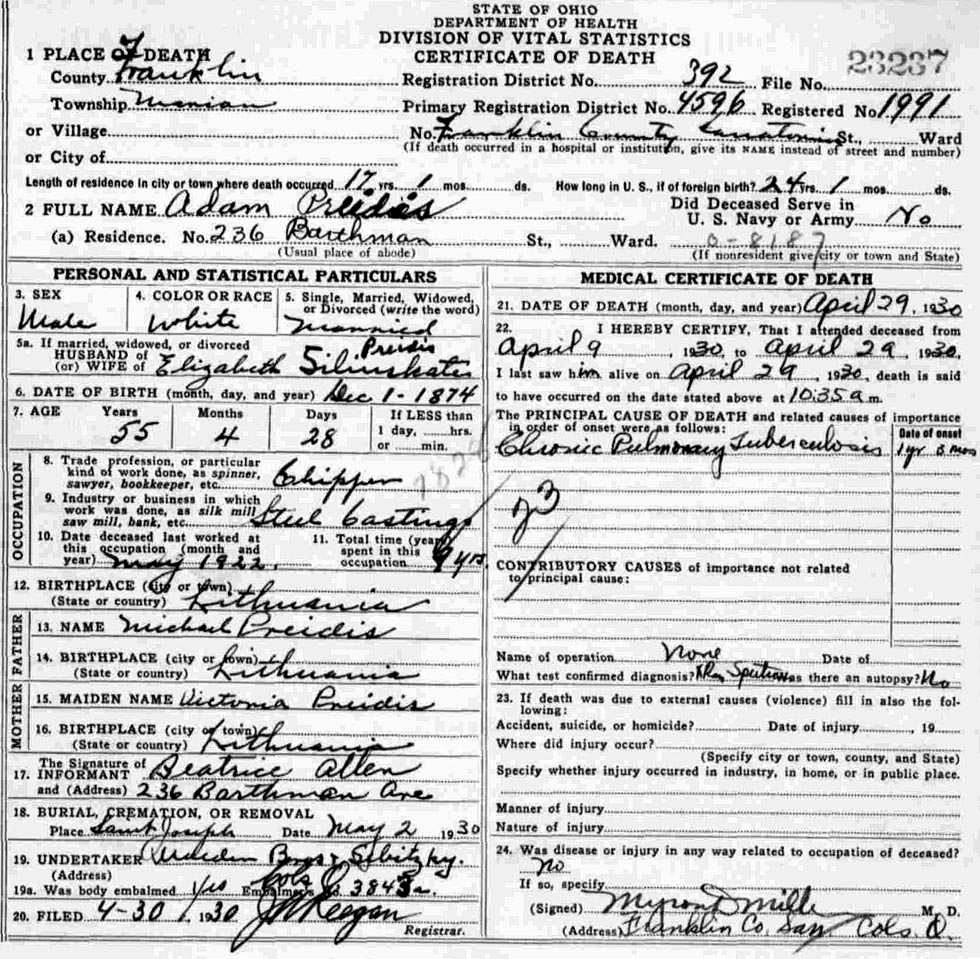 STATE OF OHIO
DEPARTMENT OF HEALTH
DIVISION OF VITAL STATISTICS
CERTIFICATE OF DEATH
1 PLACE OF DEATH
County Franklin
Township Marian
or Village
or City of
Registration District No. 392 File No. 23237
Primary Registration District No. 4596 Registered No 1991
No. Franklin County St., Ward
(If death occurred in a hospital or institution, give its NAME instead of street and number)
Length of residence in city or town where death occurred 17 yrs. 1 mos. ds. How long in U. S., if of foreign birth? 24 yrs. 1 mos. ds.
2 FULL NAME Adam Preidis
Did Deceased Serve in
U. S. Navy or Army No
(a) Residence. No. 236 Barthman St., Ward. 0-8187
(Usual place of abode) (If nonresident give city or town and State)
PERSONAL AND STATISTICAL PARTICULARS
3. SEX
Male
4. COLOR OR RACE
White
5. Single, Married, Widowed,
or Divorced (write the word)
Married
5a. If married, widowed, or divorced
HUSBAND of
(or) WIFE of Elizabeth Preidis
6. DATE OF BIRTH (month, day, and year) Dec 1-1874
7. AGE Years Months Days If LESS than
1 day, hrs.
or min.
55 4 28
OCCUPATION
8. Trade, profession, or particular
kind of work done, as spinner,
sawyer, bookkeeper, etc. Chipper
9. Industry or business in which
work was done, as silk mill
saw mill, bank, etc. Steel Castings
10. Date deceased last worked at
this occupation (month and
year) May 1922.
11. Total time (years)
spent in this
occupation 9 yrs.
12. BIRTHPLACE (city or town)
(State or country) Lithuania
FATHER
13. NAME Michael Preidis
14. BIRTHPLACE (city or town)
(State or country) Lithuania
MOTHER
15. MAIDEN NAME Victoria Preidis
16. BIRTHPLACE (city or town)
(State or country) Lithuania
17. The Signature of
INFORMANT Beatrice Allen
and (Address) 236 Barthman Ave
18. BURIAL, CREMATION, OR REMOVAL
Place Saint Joseph Date May 2 1930
19. UNDERTAKER
(Address) Cols O
19a. Was body embalmed Yes Embalmer's No. 3843a
20. FILED 4-30 1930 Keegan
Registrar.
MEDICAL CERTIFICATE OF DEATH
21. DATE OF DEATH (month, day, and year) April 29, 1930
22. I HEREBY CERTIFY, That I attended deceased from
April 9, 1930, to April 29, 1930,
I last saw him alive on April 29, 1930, death is said
to have occurred on the date stated above at 10:35 a.m.
The PRINCIPAL CAUSE OF DEATH and related causes of importance
in order of onset were as follows: Date of onset
Chronic Pulmonary Tuberculosis 1 yr 8 mos
23
CONTRIBUTORY CAUSES of importance not related
to principal cause:
Name of operation None Date of
What test confirmed diagnosis? Sputum Was there an autopsy? No
23. If death was due to external causes (violence) fill in also the following:
Accident, suicide, or homicide? Date of injury , 19
Where did injury occur?
(Specify city or town, county, and State)
Specify whether injury occurred in industry, in home, or in public place.
Manner of injury
Nature of injury
24. Was disease or injury in any way related to occupation of deceased?
No
If so, specify
(Signed) Myron D Mille M. D.
(Address) Franklin Co. San Cols. O.